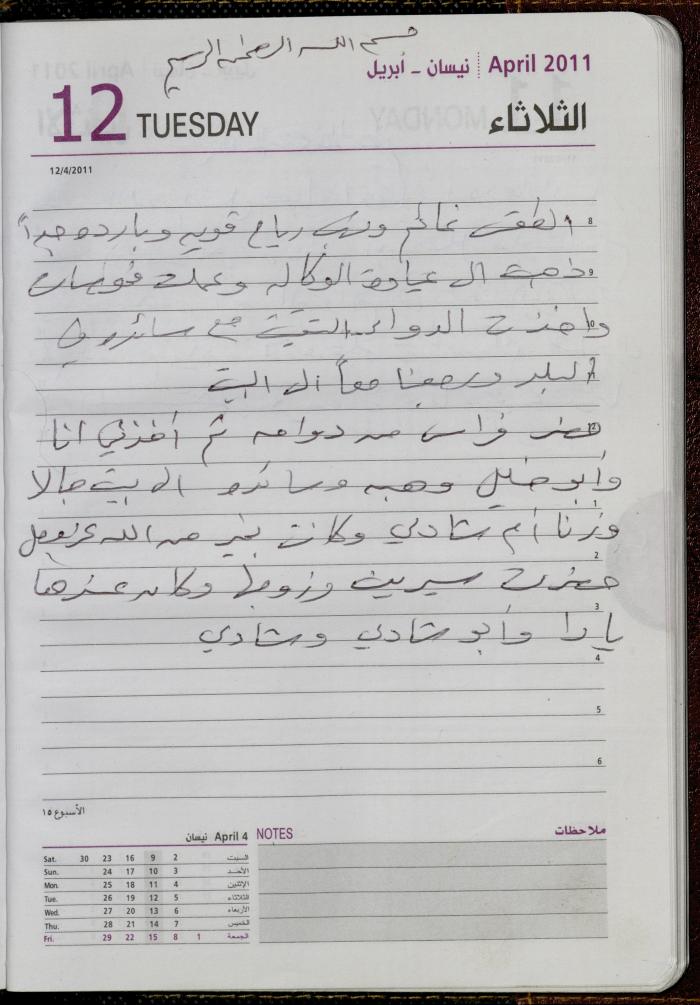 بسم الله الرحمن الرحيم
نيسان - أبريل April 2011
12 TUESDAY الثلاثاء
12/4/2011
8 الطقس غائم وهب رياح قويه وبارده جداً
9 ذهبت الى عيادة الوكاله وعملت فحوصات
10 واخذت الدواء التقيت مع سائد في
11 البلد ورجعنا معاً الى البيت
12 حضر فراس من دوامه ثم أخذني انا
وأبو خليل وهبه وسائد الى بيت جالا
1
وزرنا أم شادي وكانت بخير من الله عز وجل
2
حضرت سيرين وزوجها وكان عندها
3
يارا وأبو شادي وشادي
4
5
6
الأسبوع ١٥
April 4 نيسان
Sat. 30 23 16 9 2 السبت
Sun. 24 17 10 3 الأحد
Mon. 25 18 11 4 الإثنين
Tue. 26 19 12 5 الثلاثاء
Wed. 27 20 13 6 الأربعاء
Thu. 28 21 14 7 الخميس
Fri. 29 22 15 8 1 الجمعة
NOTES ملاحظات